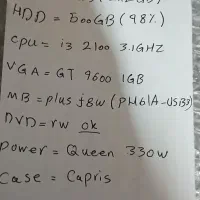 HDD = 500GB (98%)
cpu = i3 2100 3.1GHZ
VGA = GT 9600 1GB
MB = plus j&w (PH61A-USB3)
DVD = rw ok
power = Queen 330w
Case = Capris